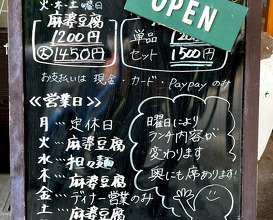 火・木・土曜日
OPEN
麻婆豆腐
1200円
大 1450円
単品
セット 1500円
お支払いは 現金・カード・Paypayのみ
≪営業日≫
月…定休日
火…麻婆豆腐
水…担々麺
木…麻婆豆腐
金…ディナー営業のみ
土…麻婆豆腐
曜日により
ランチ内容が
変わります
奥にも席あります!